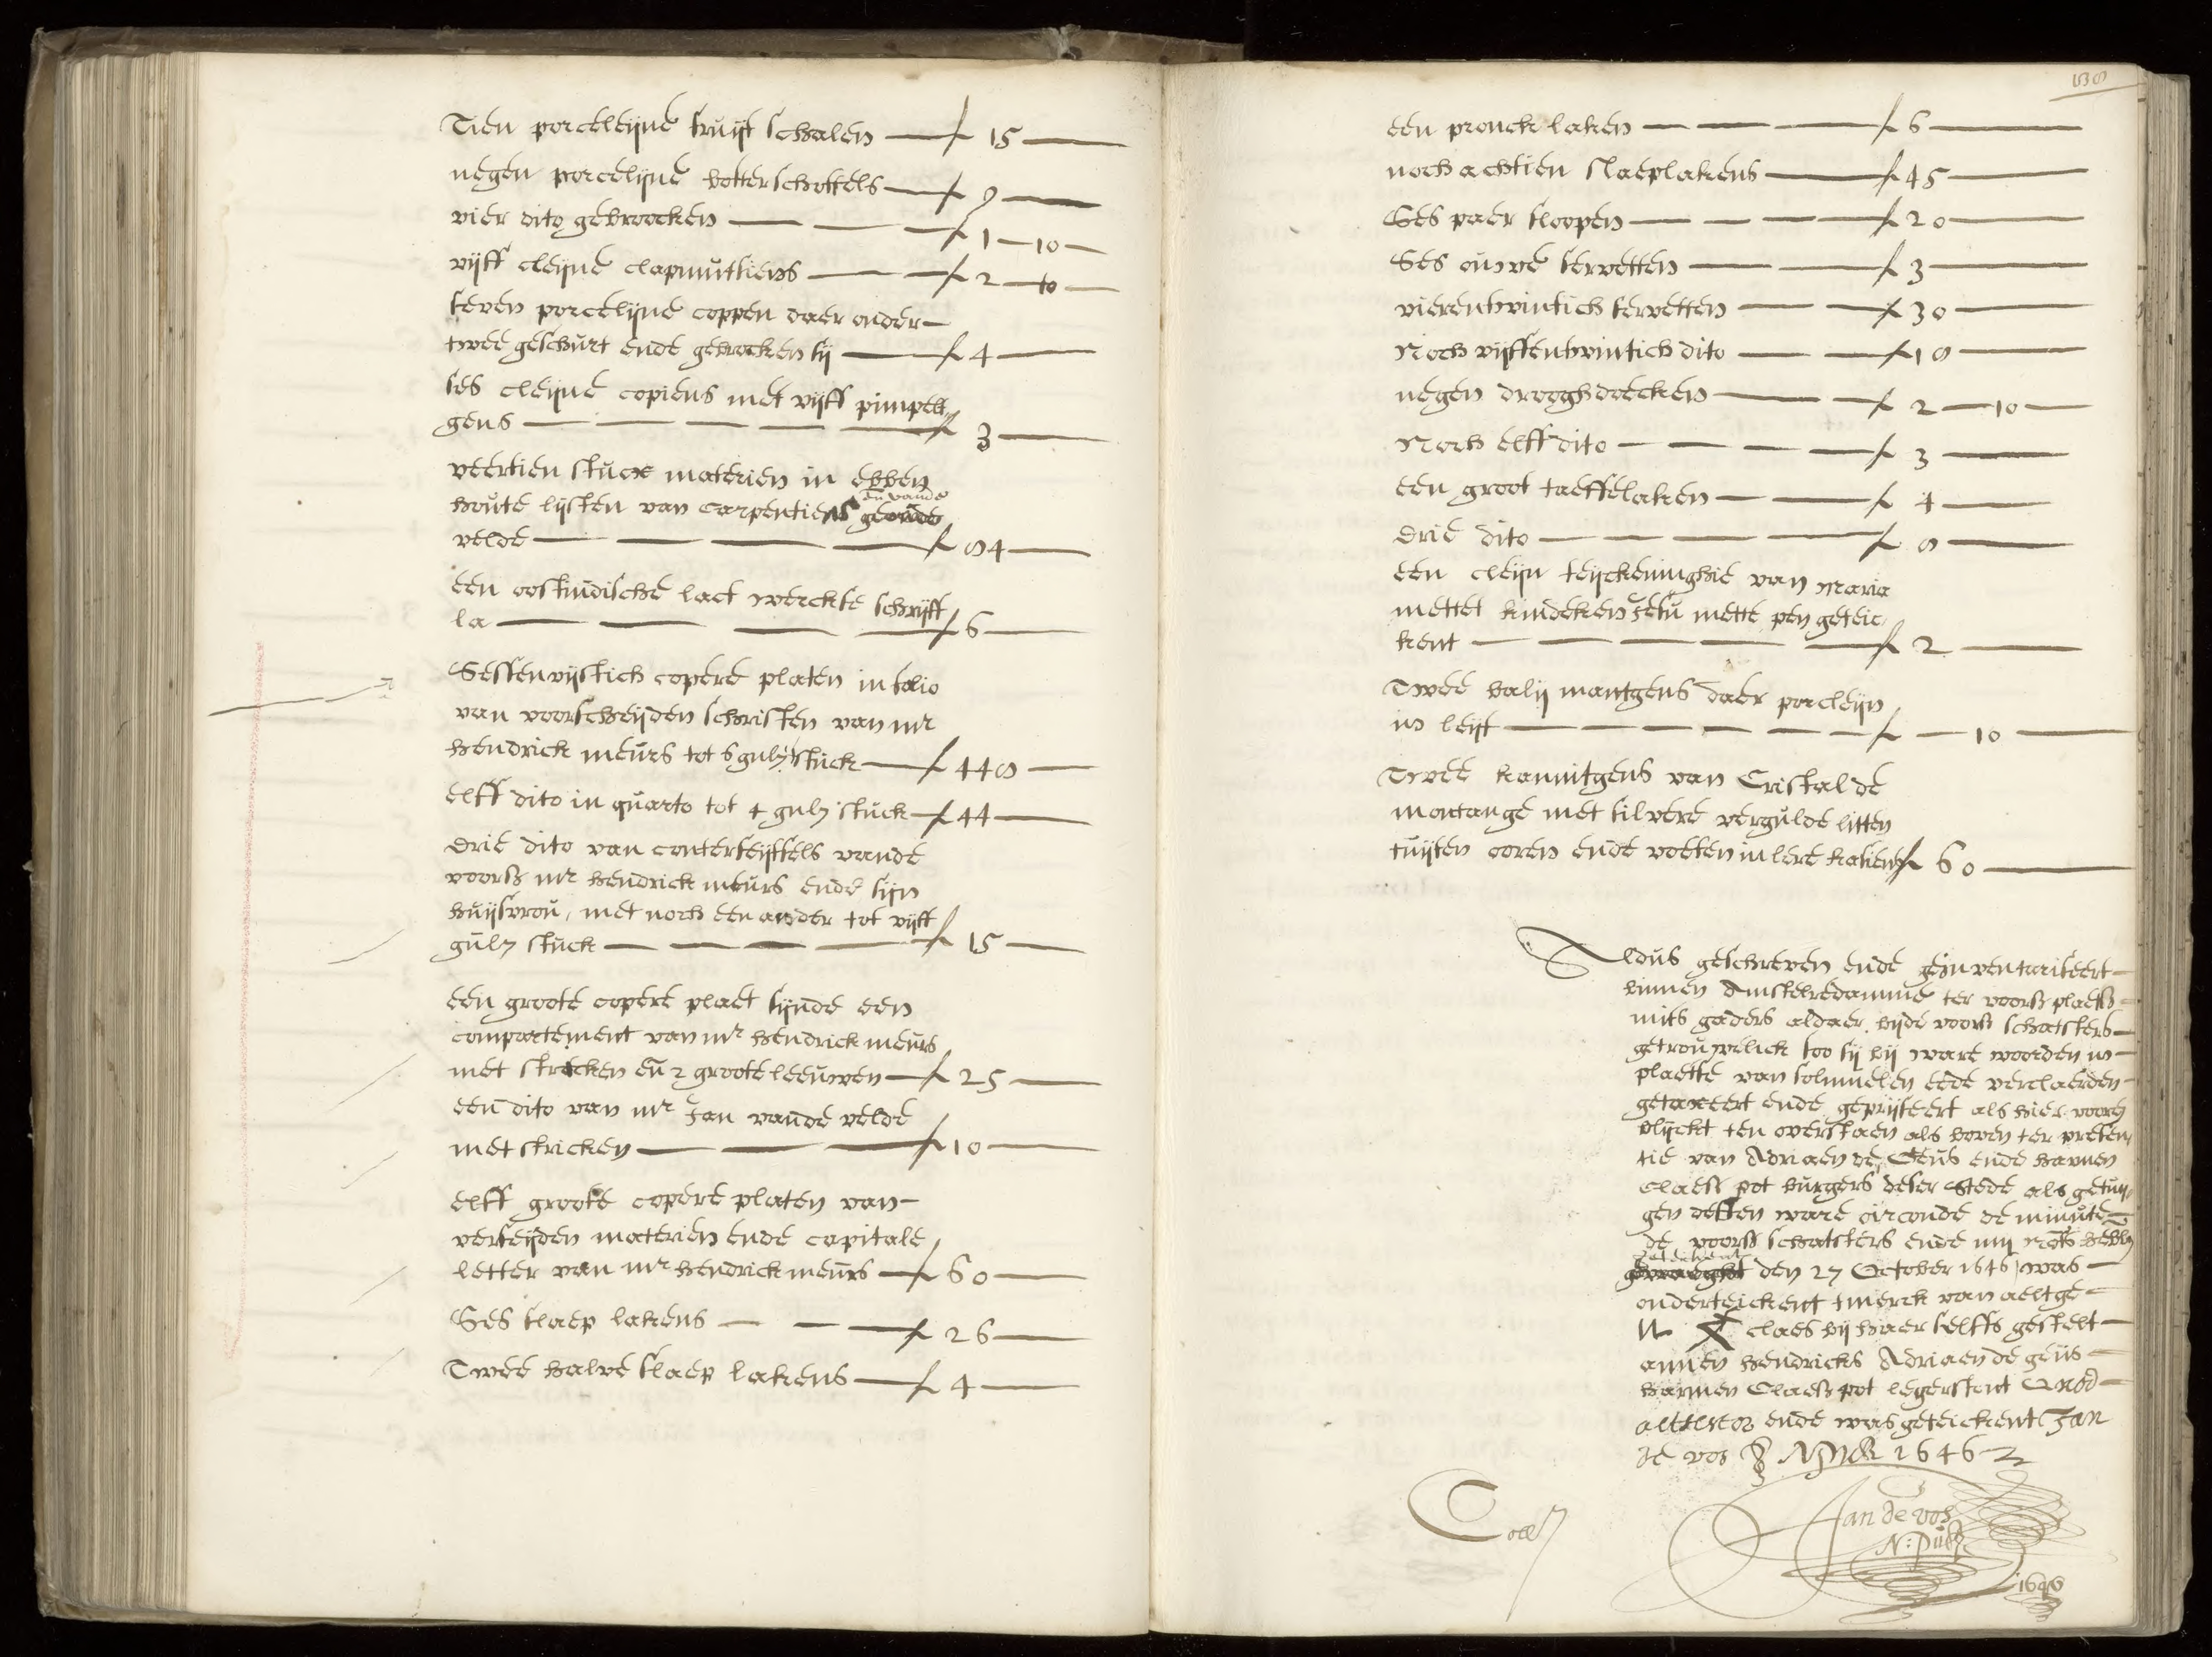 Tien porceleijne fruijt schalen — f 15 —
negen porcelijne botterschottels — f 9 —
vier dito gebroocken — f 1 — 10 —
vijff cleijne clapmutsiens — f 2 — 10 —
seven porcelijne coppen daer onder
twee geschurt ende gebrocken sij — f 4 —
ses cleijne copiens met vijff pimpelt
gens — f 3 —
veertien stucx materien in ebben
houte lijsten van Carpentiers en vande
velde — f 84 —
een oostindische lact werckse schrijff
la — f 6 —
Sessenvijftich copere platen in folio
van voorscheijden schriften van mr
hendrick meurs tot 8 guls stuck — f 448 —
elff dito in quarto tot 4 guls stuck — f 44 —
drie dito van conterfeijtsels vande
voors mr hendrick meurs ende sijn
huijsvrou, met noch een ander tot vijff
guls stuck — f 15 —
een groote copere plaet sijnde een
compartement van mr hendrick meurs
met strecken en 2 groote leeuwen — f 25 —
een dito van mr Jan vande velde
met stricken — f 10 —
elff groote copere platen van
verseijden materien ende capitale
letter van mr hendrick meurs — f 60 —
Ses slaep lakens — f 26 —
Twee halve slaep lakens — f 4 —
een pronck laken — f 6 —
noch achtien slaeplakens — f 45 —
Ses paer sloopen — f 20 —
Ses ouwe servetten — f 3 —
vierentwintich servetten — f 30 —
Noch vijffentwintich dito — f 18 —
negen drooghdoecken — f 2 — 10 —
Noch elff dito — f 3 —
een groot taeffelaken — f 4 —
drie dito — f 8 —
een cleijn teijckeninghie van Maria
mettet kindeken Jesu mette pen geteic
kent — f 2 —
Twee balij mantgens daer porcleijn
in leijt — f — 10 —
Twee kannitgens van Cristal de
montange met silvere vergulde litten
tuijten ooren ende voetten in lere kasiens f 60 —
Aldus geschreven ende geinventariseert
binnen Amstelredamme ter voors plaetse
mits gaders aldaer bijde voors schatsters
getrouwelick soo sij bij ware woorden in
plaetse van solmnelen eede verclaerden
getaxeert ende geprijseert als hier vooren
blijckt ten overstaen als boven ter presen
tie van Adriaen de Geus ende harmen
Claess pot burgers deser Stede als getuij
gen dessen ware oirconde de minute
de voors schatsters ende mij Nots hebben
geteikent den 27 October 1646 was
onderteickent tmerck van aeltge
X claes bij haer selffs gestelt
annen hendricks Adriaen de geus
harmen Claess pot legerstont Quod
attestor ende was geteickent Jan
de vos N P 1646
Coll
Jan de vos
N: Pub
1646